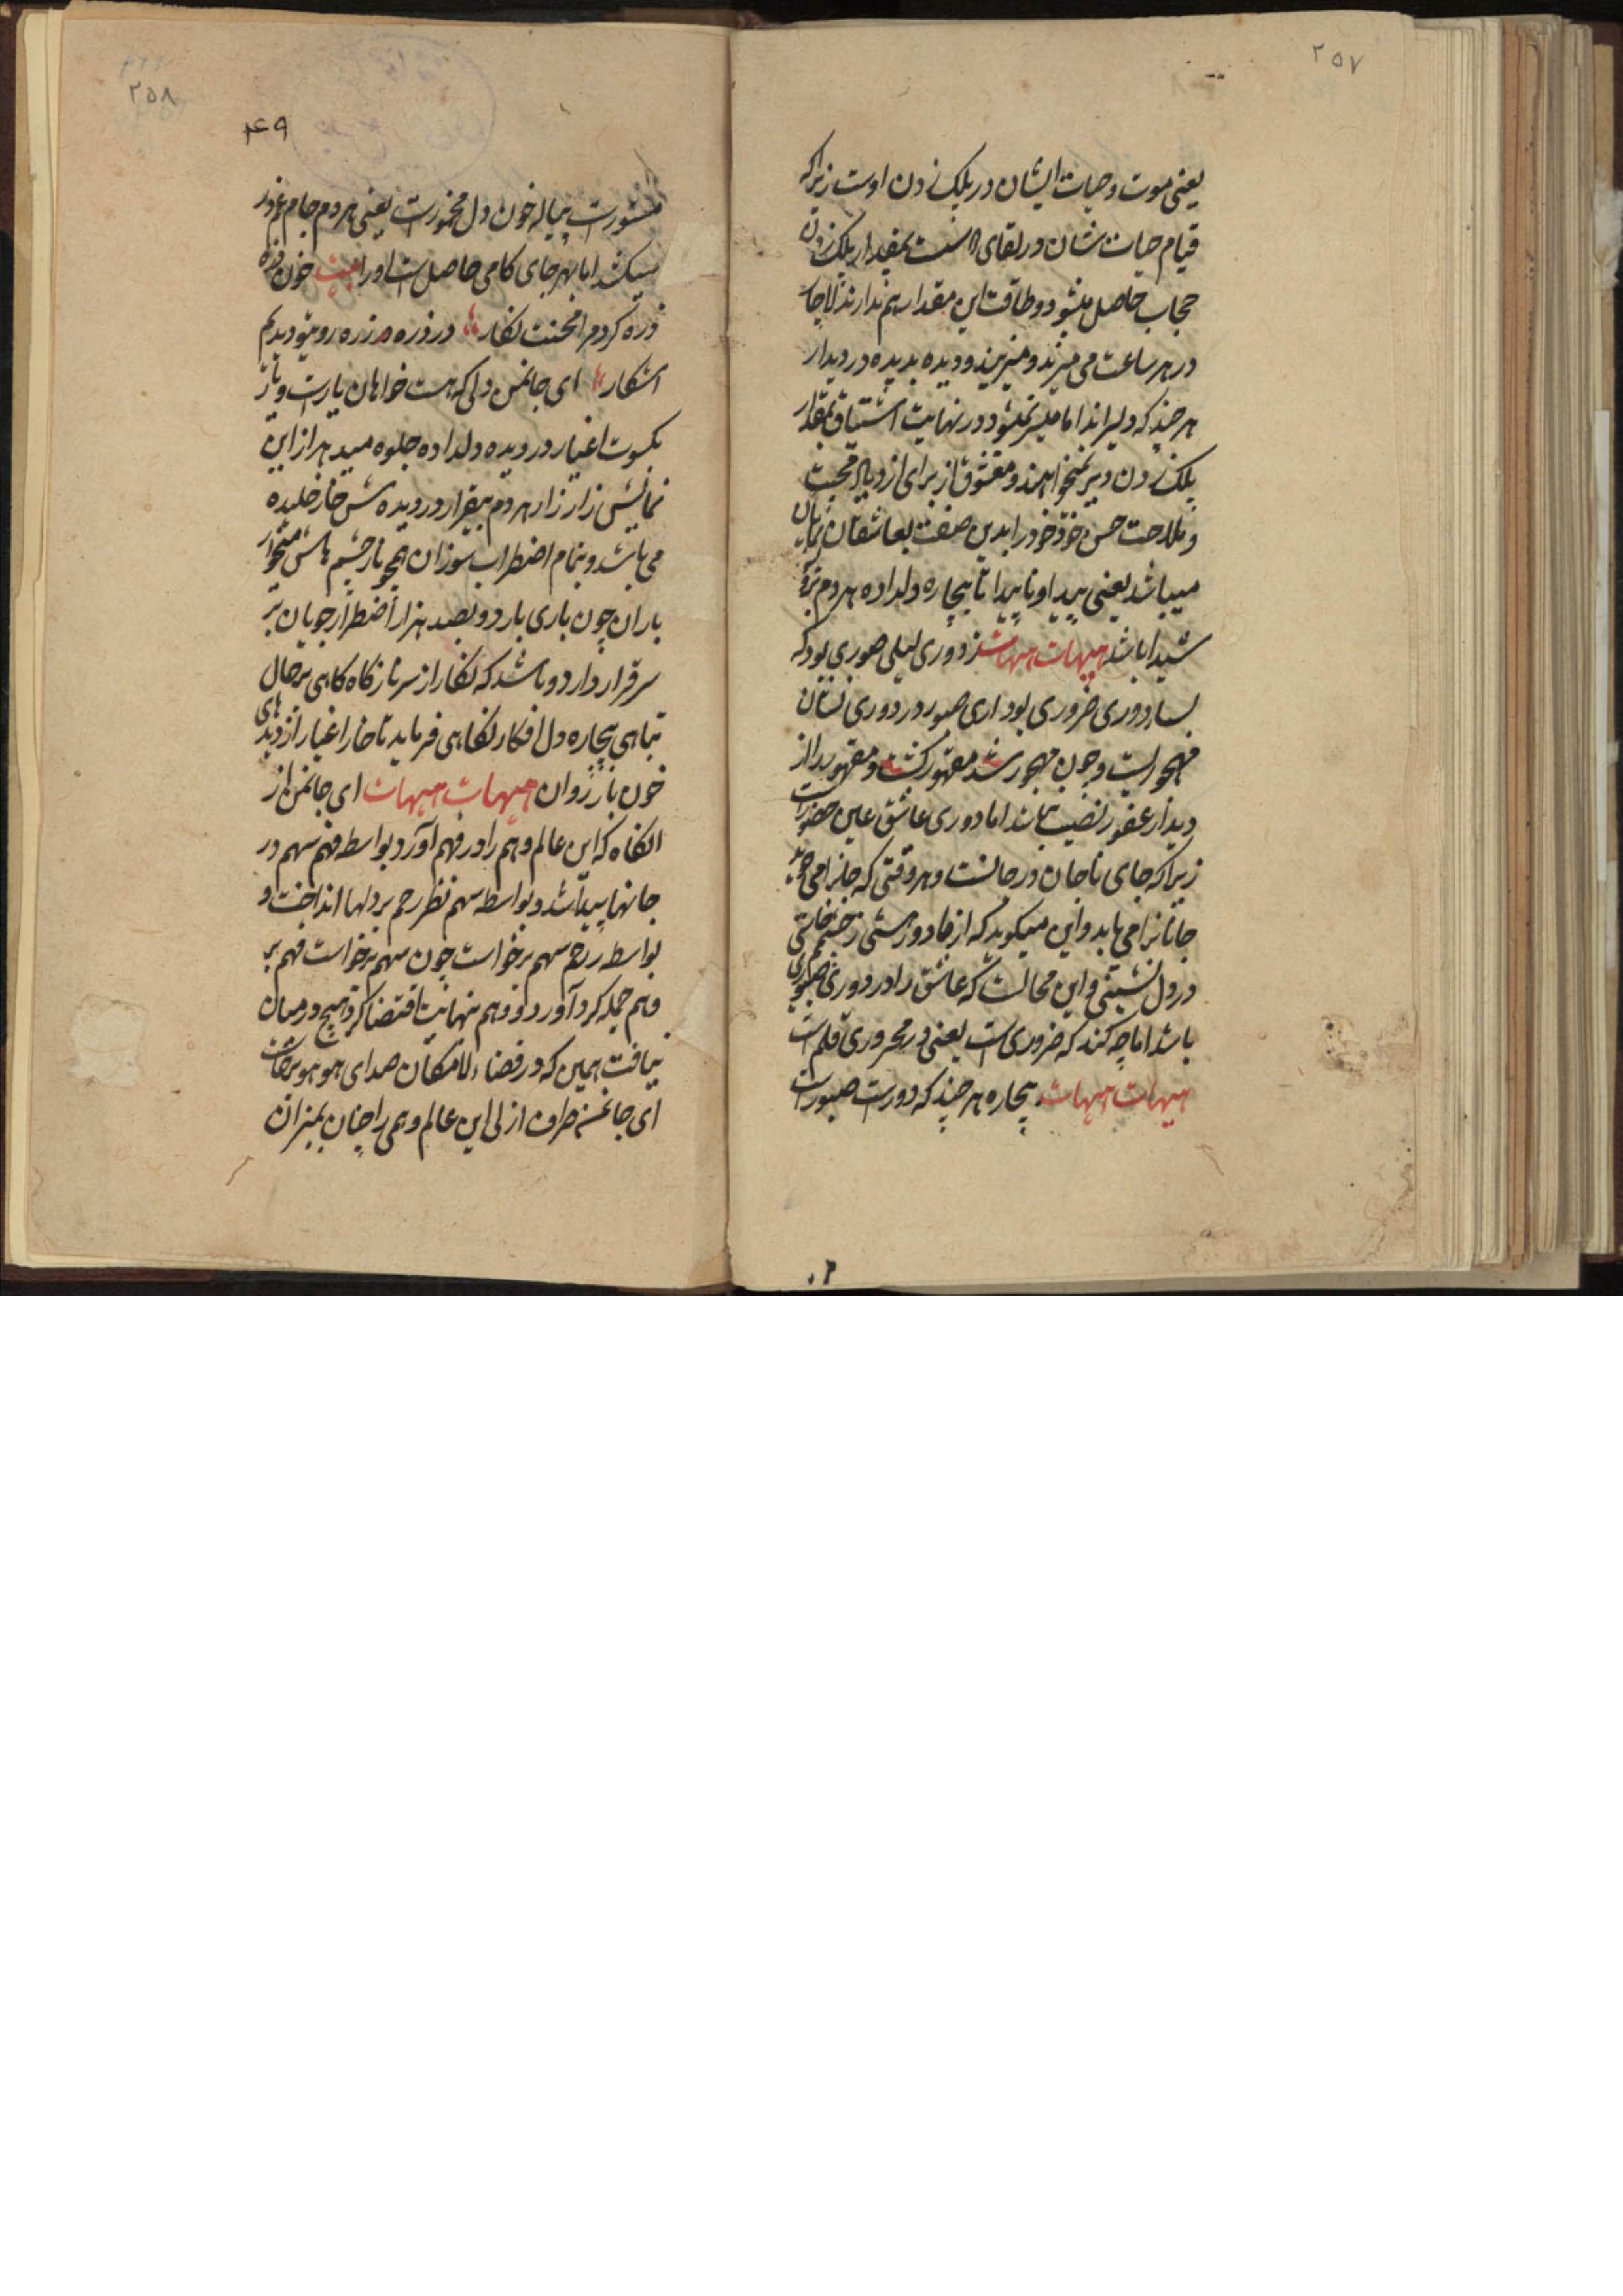 ۲۵۷
یعنی موت و حیات ایشان در پلک زدن اوست زیراکه
قیام حیات شان در لقای است بمقدار پلک زدن
حجاب حاصل میشود و طاقت این مقدار هم ندارند
در هر ساعت می میرند و میزیند و دیده بدیده در دیدار
هر چند که دلیراند اما میسر نمیشود در نهایت اشتیاق بمقدار
پلک زدن دیر نمیخواهند و معشوق از برای ازدیاد محبت
و ملاحت حسن خود را بدین صفت بعاشقان نمایان
میباشد یعنی پیدا و ناپیدا تا بیچاره دلداده هر دم برو
شیدا باشد هیهات هیهات دوری لیلی صوری بود که
بسا دوری ضروری بود اری صبور در دوری نشان
مهجوریست و چون مهجور شد مقهور گشت و مقهور را از
دیدار غفور نصیب نباشد اما دوری عاشق عین حضورست
زیراکه جای تا جان در جانست و هر وقتی که جانرا می جوید
جانانرا می یابد و این میگوید که از ما دور هستی زخم
در دل نشستی و این محالست که عاشق را در دوری صبوری
باشد اما چه کند که ضروری ست یعنی در محروری قلم است
هیهات هیهات بیچاره هر چند که دورست صبورست
۲۵۸
۴۹
منشورست پیاله خون دل مخمورست یعنی هر دم جام غم
میکشد اما بهر جای کامی حاصل است او را بیت خون ذره
ذره کردم محنت نگار در ذره ذره روی تو دیدم
اشکار ای جانمن دلی که هست خواهان یارست و یار
بکسوت اغیار در دیده دلداده جلوه میدهد از این
نمایش زار زار هر دم بیقرار در دیده ش خار خلیده
می باشد و بتمام اضطراب سوزان همچو نار چشم هاش
باران چون باری بارد و بصد هزار اضطرار جویان بر
سر قرار دارد و باشد که نگار از سر ناز گاه گاهی بر حال
تباهی بیچاره دل افکار نگاهی فرماید تا خار اغیار از دیدهای
خون بار روان هیهات هیهات ای جانمن از
انگاه که این عالم وهم را در فهم آورد بواسطه فهم سهم در
جانها پیدا شد و بواسطه سهم نظر رحم بر دلها انداخت و
بواسطه رحم سهم برخواست چون سهم برخواست فهم بر
وهم حمله کرد آورد و وهم نهایت اقتضا کرد هیچ در میان
نیافت همین که در فضاء لامکان صدای هو هو
ای جانمن صراف ازلی این عالم وهمی را چنان بمیزان